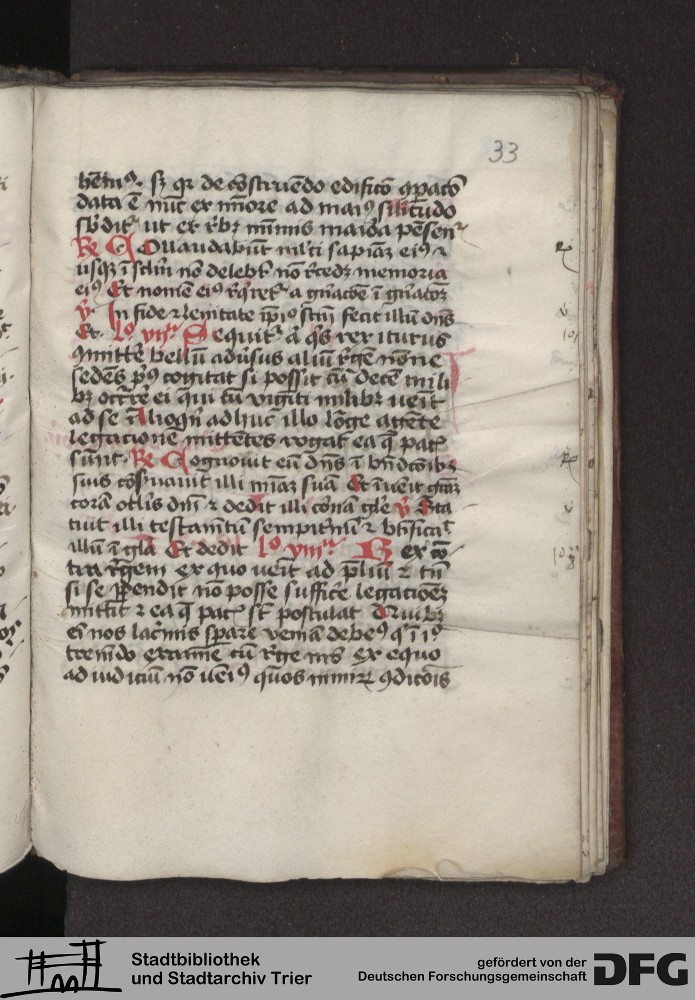 33
data ē nūc ex mīore ad maiꝰ silitudo
sbdit ut ex rebꝫ mīmis maioa pēsent
Re Collaudabūt mlti sapiāz eiꝰ ⁊
usqꝫ ī sclm nō delebt nō rcedz memoria
eiꝰ Et nomē eiꝰ rqret a gnacōe ī gnacōz
v In fide ⁊ lenitate ipiꝰ scm fecit illū dns
Et. lo vijͣ Sequit a qs rex iturus
ꝯmitte bellū adusus aliū rgē nōne
sedēs pꝰ cogitat si possit cū decē mili
bꝫ occre ei qui cū viginti milibꝫ ueīt
ad se Alioqn adhuc illo lōge agēte
legacione mittētes rogat ea q pacꝭ
sūnt. Re Cognouit eū dns ī bndcōibꝫ
suis cōsuauit illi mīaz suā Et īueīt gaz
corā oclis dnī ⁊ dedit illi coronā glē v Sta
tuit illi testamtū sempitnū ⁊ btificat
illū ī glā Et dedit lo viijͣ Rex cō
tra rgem ex quo ueīt ad pliū ⁊ tn̄
si se ppendit nō posse suffice legacioēz
mittit ⁊ ea q pacꝭ st postulat Quibꝫ
ei nos lacmis spare veniā debeꝰ q ī iꝰ
tremēdo examīe cū rge nro ex equo
ad iudiciū nō ueiꝰ quos nimiꝝ ꝯdicōis
Stadtbibliothek
und Stadtarchiv Trier
gefördert von der
Deutschen Forschungsgemeinschaft
DFG